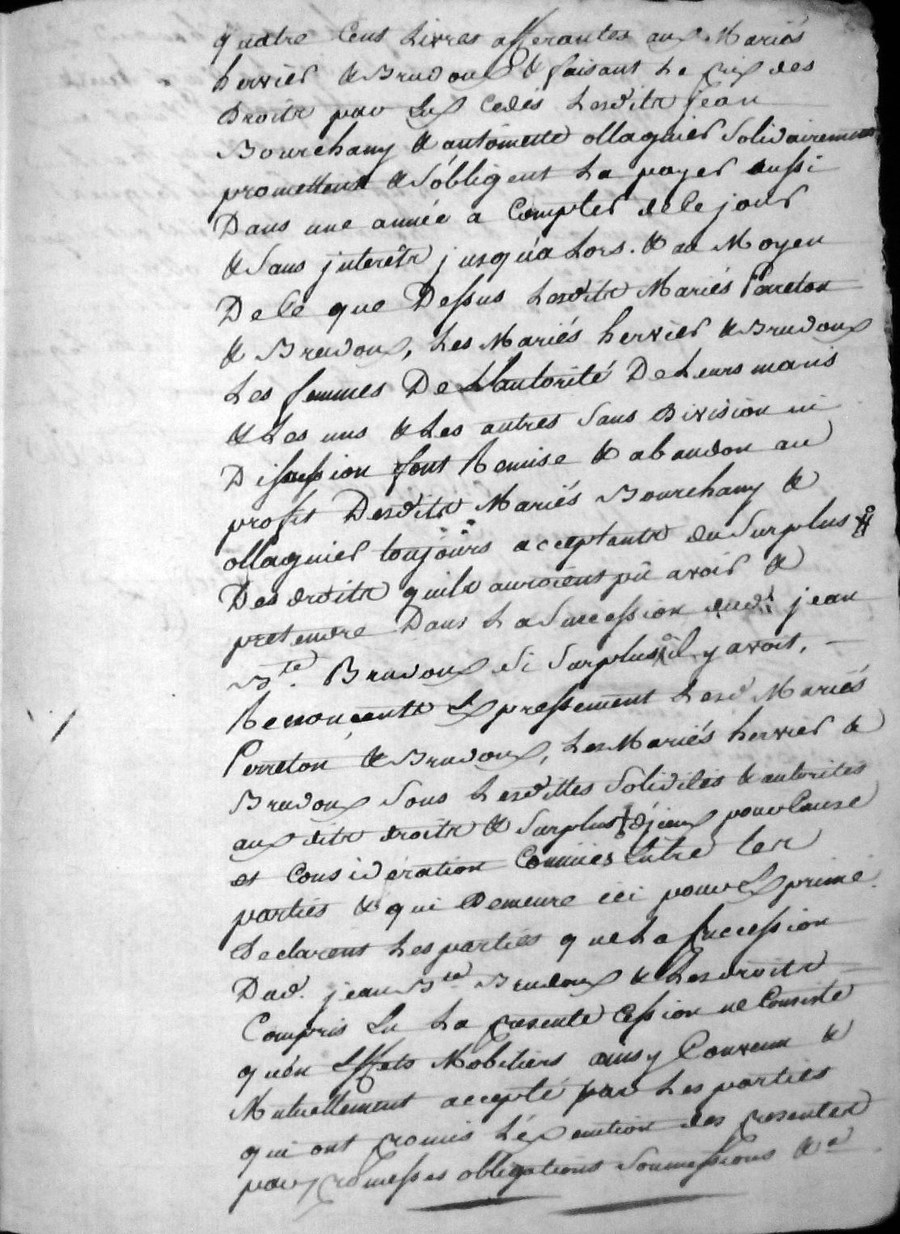 quatre Cens Livres afferantes aux Mariés
hervier & Brudoux & faisant Le prix des
Droits par Eux Cedés Lesdits jean
Bourchany & antoinette ollagnier Solidairement
promettent & S'obligent La payer aussi
Dans une année a Compter de Ce jour
& Sans jnterêts jusqu'a Lors. & au Moyen
De Ce que Dessus Lesdits Mariés Perreton
& Brudoux, Les Mariés hervier & Brudoux
Les femmes De L'autorité De Leurs maris
& Les uns & Les autres Sans Division ni
Discussion font Remise & abandon au
profit Desdits Mariés Bourchany &
ollagnier toujours acceptants du Surplus
Des droits quils auroient pû avoir &
pretendre Dans La Succession dud. jean
Bte. Brudoux Si Surplus il y avoit,
Renonceants Expressement Lesd. Mariés
Perreton & Brudoux, Les Mariés hervier &
Brudoux Sous Lesdittes Solidités & autorités
aux dits droits & Surplus d'jceux pour Cause
et Considération Connües Entre Les
parties & qui Demeure ici pour Exprimé.
Declarent Les parties que La Succession
Dud. jean Bte. Brudoux & Les droits
Compris En La presente Cession ne Consiste
qu'en Effets Mobiliers ainsy Convenu &
Mutuellement accepté par Les parties
qui ont promis L'éxecution des presentes
par promesses obligations Soumissions &a